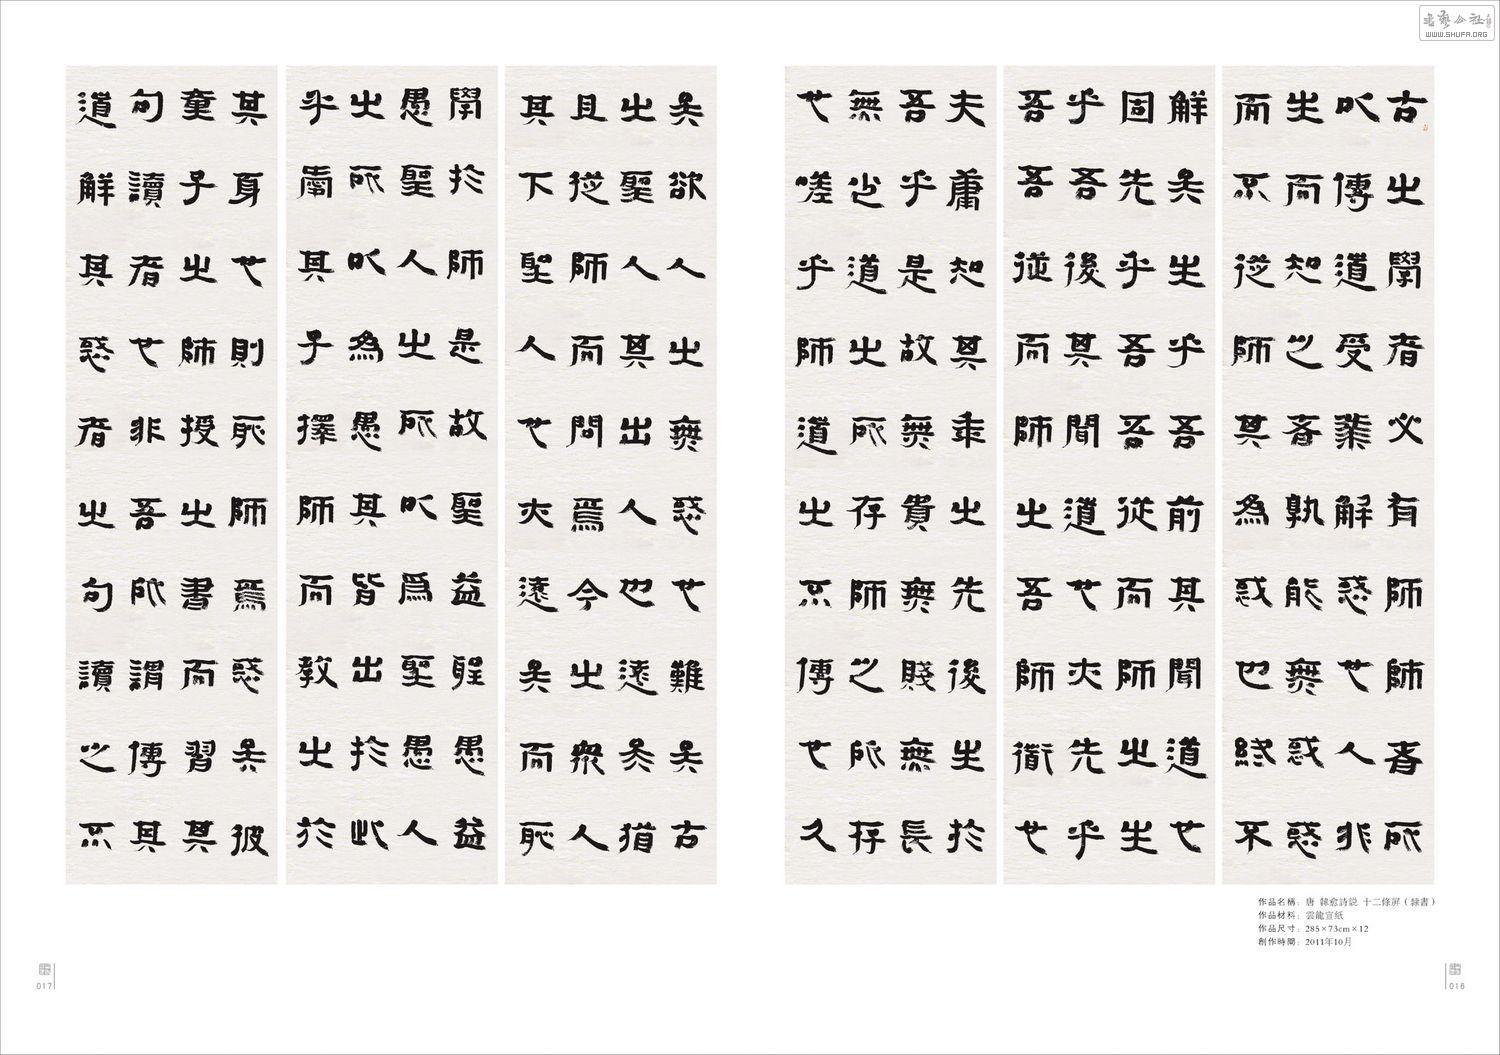 古之學者必有師師者所
以傳道受業解惑也人非
生而知之者孰能無惑惑
而不從師其為惑也終不
解矣生乎吾前其聞道也
固先乎吾吾從而師之生
乎吾後其聞道也亦先乎
吾吾從而師之吾師衟也
夫庸知其年之先後生於
吾乎是故無貴無賤無長
無少道之所存師之所存
也嗟乎師道之不傳也久
矣欲人之無惑也難矣古
之聖人其出人也遠矣猶
且從師而問焉今之眾人
其下聖人也亦遠矣而恥
學於師是故聖益聖愚益
愚聖人之所以為聖愚人
之所以為愚其皆出於此
乎愛其子擇師而教之於
其身也則恥師焉惑矣彼
童子之師授之書而習其
句讀者也非吾所謂傳其
道解其惑者之句讀之不
作品名稱：唐 韓愈詩說 十二條屏（隸書）
作品材料：雲龍宣紙
作品尺寸：285×73cm×12
創作時間：2011年10月
016
017
書藝公社
WWW.SHUFA.ORG